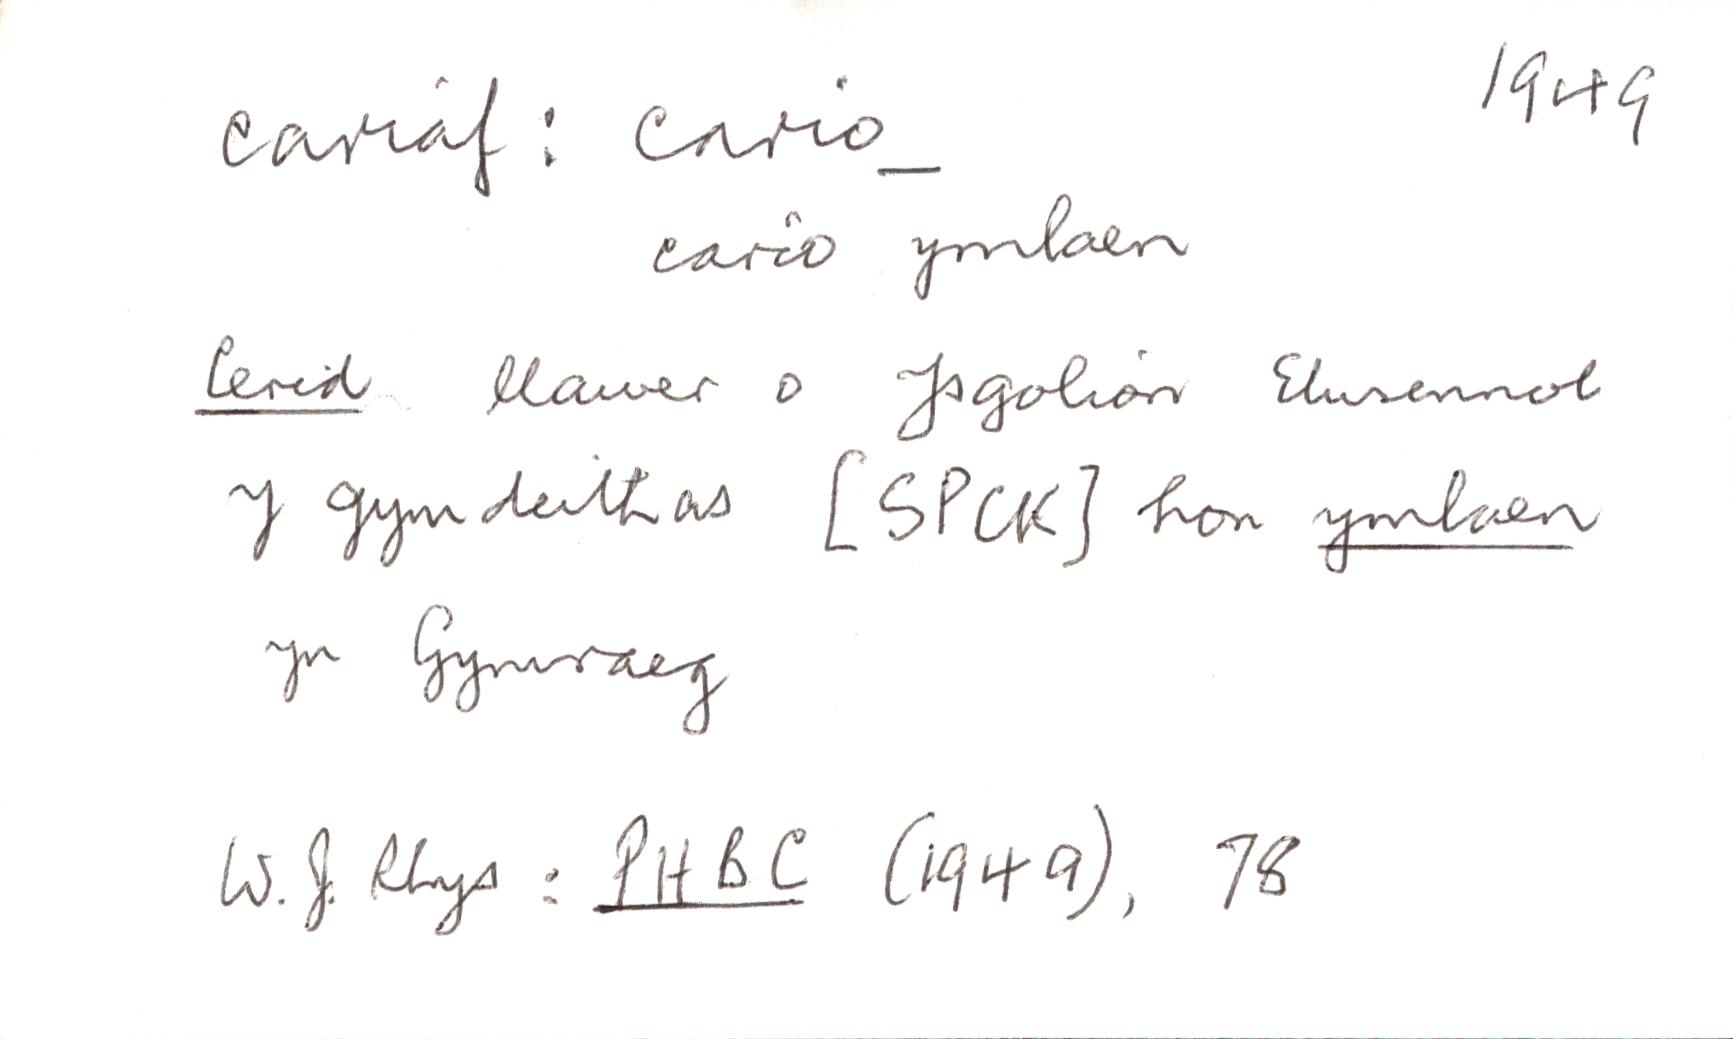 1949
cariaf: cario_
cario ymlaen
Cerid llawer o Ysgolion Elusennol
y gymdeithas [SPCK] hon ymlaen
yn Gymraeg
W. J. Rhys: PHBC (1949), 78